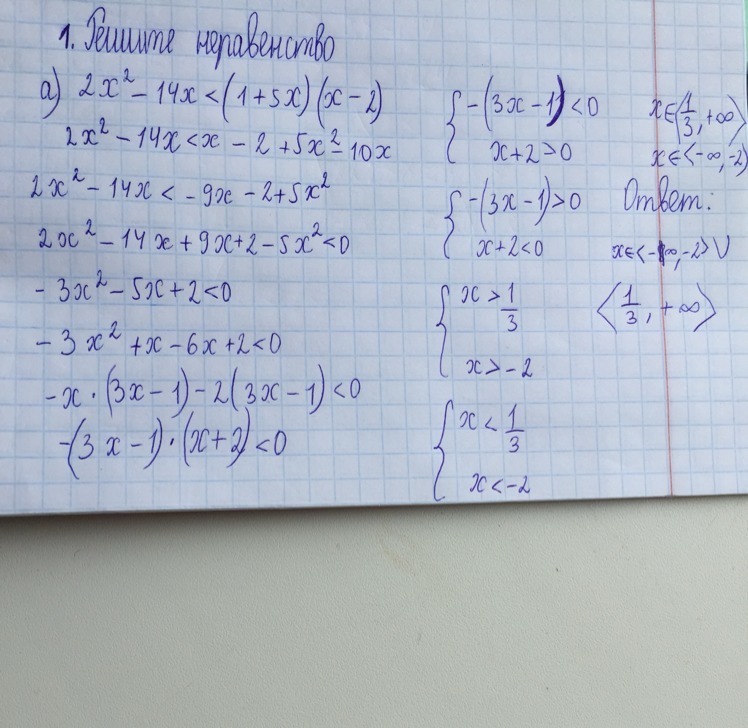 1. Решите неравенство
а) 2x² - 14x < (1 + 5x) (x - 2)
2x² - 14x < x - 2 + 5x² - 10x
2x² - 14x < - 9x - 2 + 5x²
2x² - 14x + 9x + 2 - 5x² < 0
- 3x² - 5x + 2 < 0
- 3x² + x - 6x + 2 < 0
- x · (3x - 1) - 2(3x - 1) < 0
-(3x - 1) · (x + 2) < 0
{ -(3x - 1) < 0
x + 2 > 0
{ -(3x - 1) > 0
x + 2 < 0
{ x > 1/3
x > -2
{ x < 1/3
x < -2
x ∈ ⟨1/3, +∞⟩
x ∈ ⟨-∞, -2⟩
Ответ:
x ∈ ⟨-∞, -2⟩ ∪
⟨1/3, +∞⟩